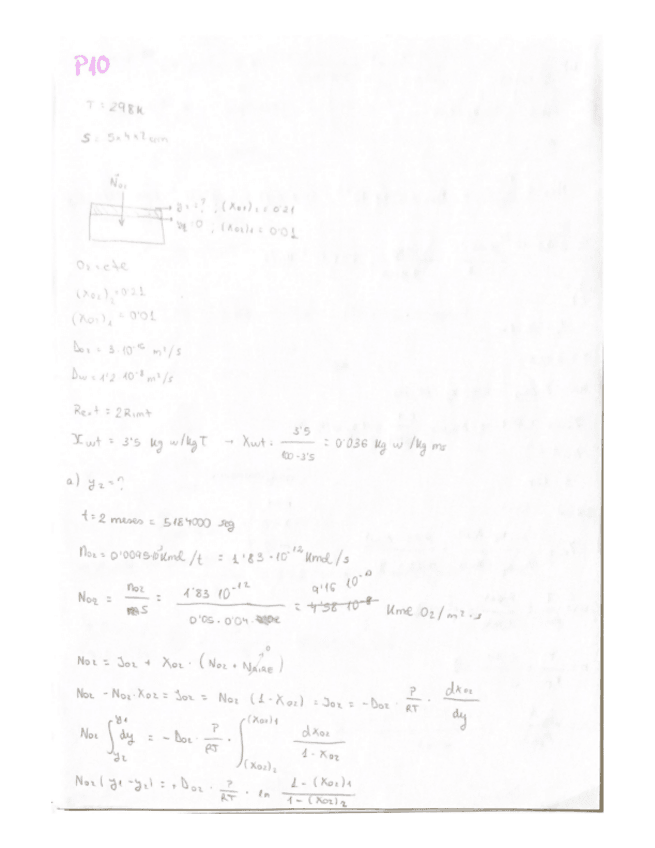 P10
T = 298K
S = 5x4x2 cm
No2
y2 = ? , (Xo2)2 = 0'21
y1 = 0 , (Xo2)1 = 0'01
O2 = cte
(Xo2)2 = 0'21
(Xo2)1 = 0'01
Do2 = 3·10 m²/s
Dw = 1'2·10⁻⁸ m²/s
Rext = 2Rint
Xwt = 3'5 kg w/kg T → Xwt = 3'5 / 100-3'5 = 0'036 kg w/kg ms
a) y2 = ?
t = 2 meses = 5184000 seg
no2 = Kmol /t = 1'83·10⁻¹² Kmol/s
No2 = no2 / S = 1'83 10⁻¹² / 0'05·0'04 = 9'16 10 Kmol O2/m²·s
No2 = Jo2 + Xo2 · (No2 + NAIRE) 0
No2 - No2·Xo2 = Jo2 = No2 (1-Xo2) = Jo2 = -Do2 · P/RT · dXo2/dy
No2 ∫ y2 y1 dy = -Do2 · P/RT · ∫ (Xo2)2 (Xo2)1 dXo2 / 1-Xo2
No2 (y1-y2) = +Do2 · P/RT · ln 1-(Xo2)1 / 1-(Xo2)2